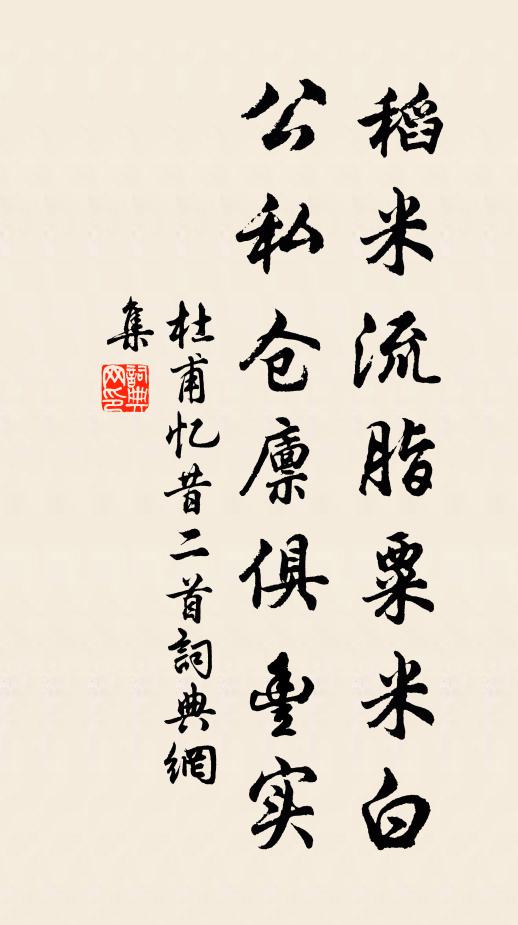 稻米流脂粟米白
公私仓廪俱豊实
杜甫忆昔二首詞典網
集
詞典网印